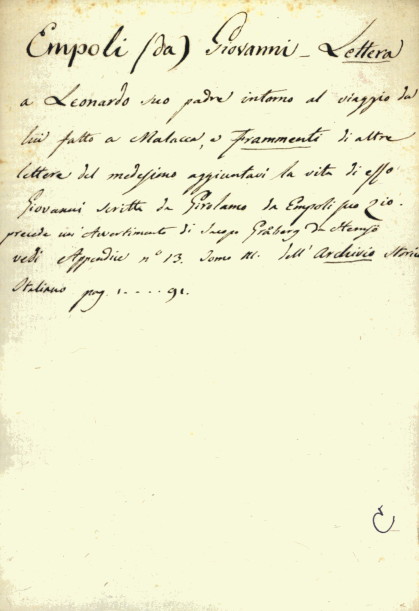 Empoli (da) Giovanni - Lettera
a Leonardo suo padre intorno al viaggio da
lui fatto a Malacca, e Frammenti di altre
lettere del medesimo aggiuntavi la vita di esso
Giovanni scritta da Girolamo da Empoli suo zio.
precede un Avvertimento di Jacopo Gråberg da Hemsö
vedi Appendice n° 13. Tomo III. dell'Archivio Storico
Italiano pag. 1 ---- 91.
E